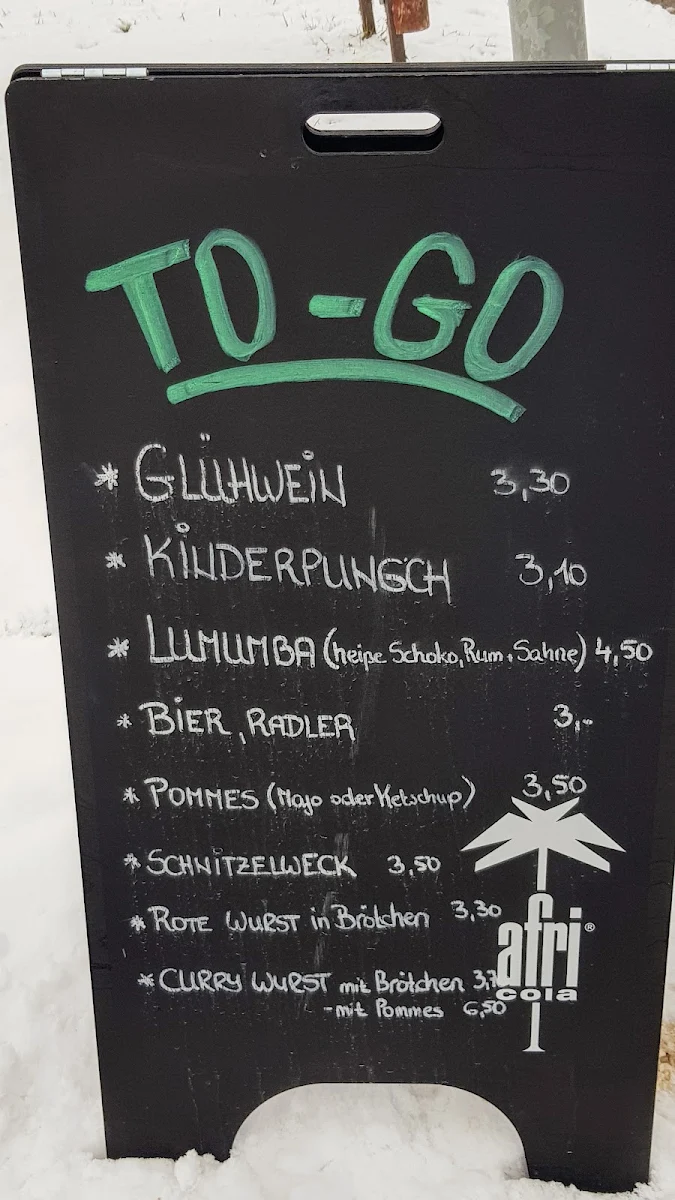 TO-GO
* GLÜHWEIN 3,30
* KINDERPUNGSCH 3,10
* LUMUMBA (heiße Schoko, Rum + Sahne) 4,50
* BIER, RADLER 3,-
* POMMES (Mayo oder Ketschup) 3,50
* SCHNITZELWECK 3,50
* ROTE WURST in Brötchen 3,30
* CURRY WURST mit Brötchen
- mit Pommes 6,50
afri®
cola